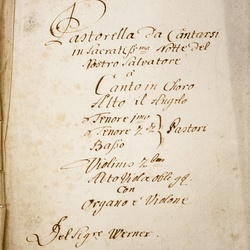 Pastorella da Cantarsi
in Sacratissma Notte del
Nostro Salvatore
a
Canto in Choro
Alto il Angelo
Tenore 1mo
Tenore 2do } Pastori
Basso
Violinis 2bus
Alto Viola oblig.
con
Organo e Violone
Del Sigre Werner.